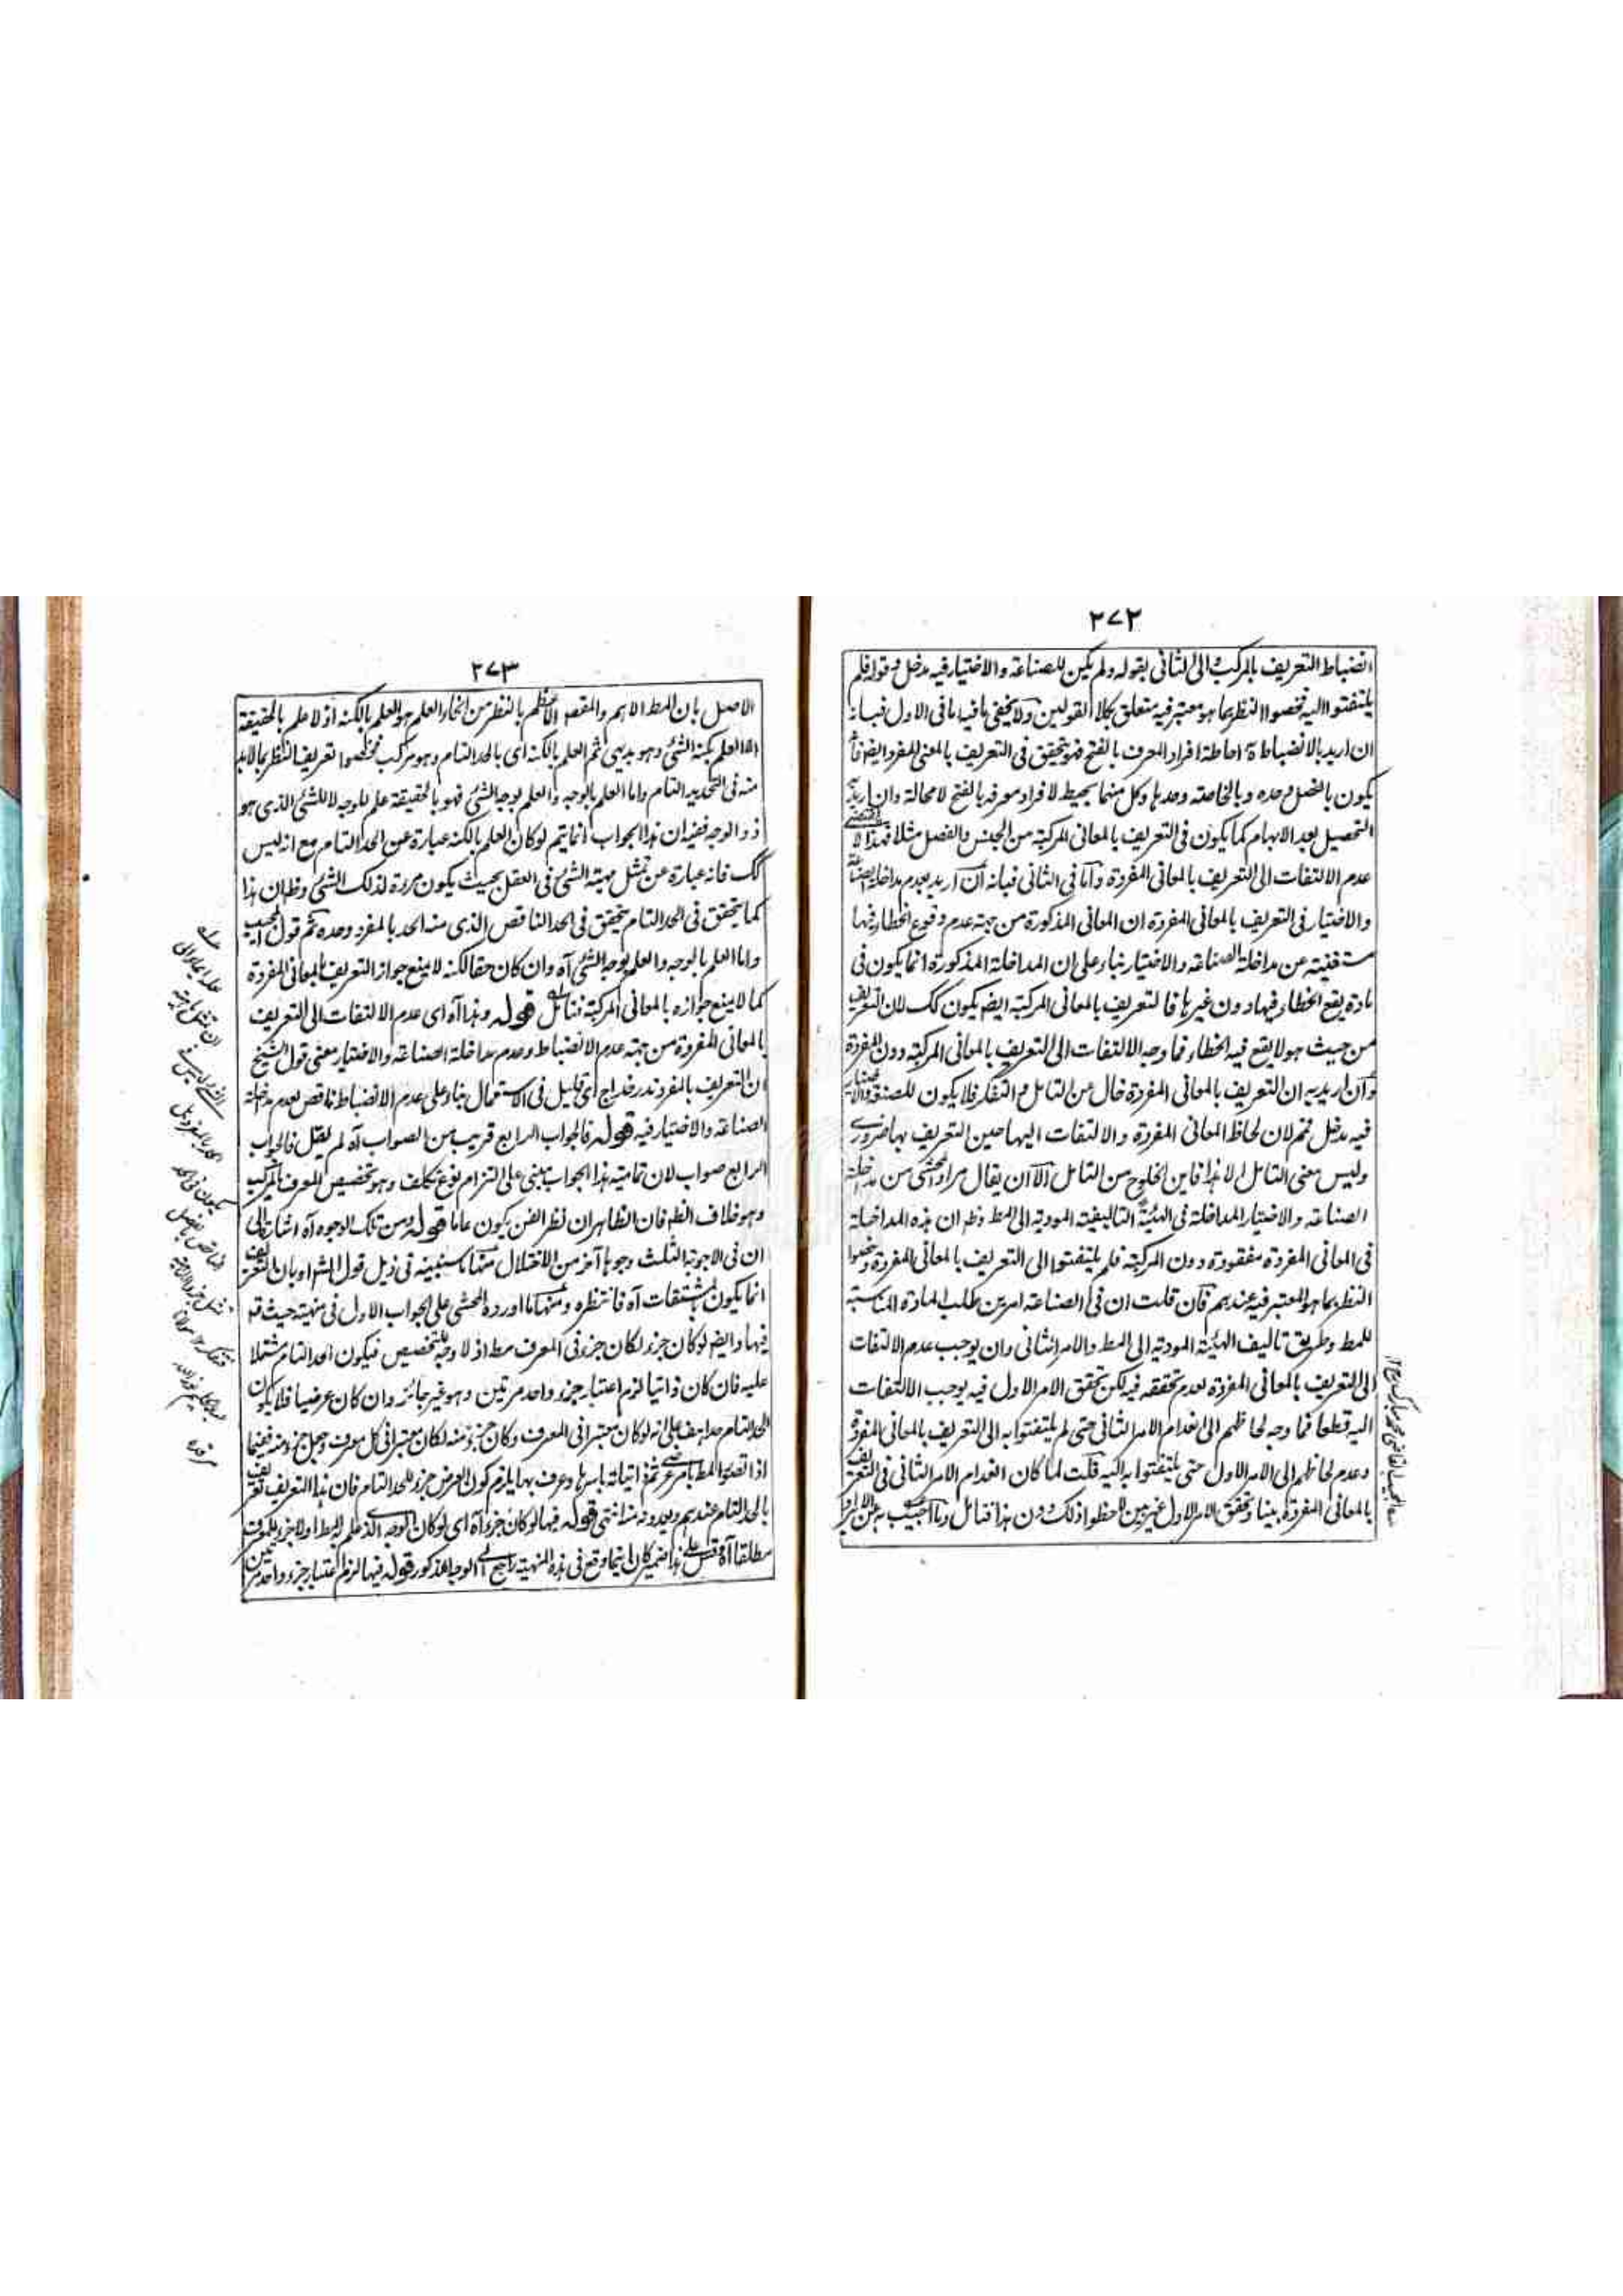 ٢٧٢
انضباط التعريف بالمركب والى الثانى بقوله ولم يكن للصناعة والاختيار فيه مدخل وقوله فلم
يلتفتوا اليه فخصوا النظر بما هو معتبر فيه متعلق بكلا القولين ولا يخفى ما فيه اما فى الاول فبانه
ان اريد بالانضباط احاطة افراد المعرف بالفتح فهو يتحقق فى التعريف بالمعنى المفرد ايضا فانه
يكون بالفصل وحده وبالخاصة وحدها وكل منهما يحيط لافراد معرفه بالفتح لا محالة وان اريد به
التحصيل بعد الابهام كما يكون فى التعريف بالمعانى المركبة من الجنس والفصل مثلا فهذا لا يقتضى
عدم الالتفات الى التعريف بالمعانى المفردة واما فى الثانى فبانه ان اريد بعدم مداخلة الصناعة
والاختيار فى التعريف بالمعانى المفردة ان المعانى المذكورة من جهة عدم وقوع الخطاء فيها
مستغنية عن مداخلة الصناعة والاختيار بناء على ان المداخلة المذكورة انما يكون فى
مادة يقع الخطاء فيها دون غيرها فالتعريف بالمعانى المركبة ايضا يكون كك لان التعريف
من حيث هو لا يقع فيه الخطاء فما وجه الالتفات الى التعريف بالمعانى المركبة دون المفردة
وان اريد به ان التعريف بالمعانى المفردة خال عن التامل والتفكر فلا يكون للصنعة والاختيار
فيه مدخل فمم لان لحاظ المعانى المفردة والالتفات اليها حين التعريف بها ضرورى
وليس معنى التامل الا هذا فاين الخلوح من التامل الا ان يقال مراد المحشى من مداخلة
الصناعة والاختيار المداخلة فى الهيئة التاليفية المودية الى المط وظ ان هذه المداخلة
فى المعانى المفردة مفقودة دون المركبة فلم يلتفتوا الى التعريف بالمعانى المفردة وخصوا
النظر بما هو المعتبر فيه عندهم فان قلت ان فى الصناعة امرين طلب المادة المناسبة
للمط وطريق تاليف الهيئة المودية الى المط والامر الثانى وان يوجب عدم الالتفات
الى التعريف بالمعانى المفردة لعدم تحققه فيه لكن تحقق الامر الاول فيه يوجب الالتفات
اليه قطعا فما وجه لحاظهم الى انعدام الامر الثانى حتى لم يلتفتوا به الى التعريف بالمعانى المفردة
وعدم لحاظهم الى الامر الاول حتى يلتفتوا به اليه قلت لما كان انعدام الامر الثانى فى التعريف
بالمعانى المفردة بينا وتحقق الامر الاول غير بين لاحظوا ذلك دون هذا فتامل وما اجيب به عن الايراد
٢٧٣
الاصل بان المط الاهم والمقصد الاعظم بالنظر من انحاء العلم هو العلم بالكنه اذ لا علم بالحقيقة
الا العلم بكنه الشئ وهو بديهى ثم العلم بالكنه اى بالحد التام وهو مركب فخصصوا تعريف النظر بما لابد
منه فى التحديد التام واما العلم بالوجه والعلم بوجه الشئ فهو بالحقيقة علم للوجه لا للشئ الذى هو
ذو الوجه ففيه ان هذا الجواب انما يتم لو كان العلم بالكنه عبارة عن الحد التام مع انه ليس
كك فانه عبارة عن تمثل مهية الشئ فى العقل بحيث يكون مرءة لذلك الشئ وظ ان هذا
كما يتحقق فى الحد التام يتحقق فى الحد الناقص الذى منه الحد بالمفرد وحده ثم قول المجيب
واما العلم بالوجه والعلم بوجه الشئ آه وان كان حقا لكنه لا يمنع جواز التعريف بالمعانى المفردة
كما لا يمنع جوازه بالمعانى المركبة فتامل قوله وهذا آه اى عدم الالتفات الى التعريف
بالمعانى المفردة من جهة عدم الانضباط وعدم مداخلة الصناعة والاختيار معنى قول الشيخ
ان التعريف بالمفرد ندر خداج اى قليل فى الاستعمال بناء على عدم الانضباط ناقص لعدم مداخلة
الصناعة والاختيار فيه قوله فالجواب الرابع قريب من الصواب آه لم يقل فالجواب
الرابع صواب لان تمامية هذا الجواب مبنى على التزام نوع تكلف وهو تخصيص المعرف بالمركب
وهو خلاف الظ فان الظاهر ان نظر الفن يكون عاما قوله ومن تلك الوجوه آه اشارة الى
ان فى الاجوبة الثلث وجوها آخر من الاختلال منها ما سنبينه فى ذيل قول الشم او بان التعريف
انما يكون بالمشتقات آه فانتظره ومنها ما اورده المحشى على الجواب الاول فى منهية حيث قه
فيها وايضا لو كان جزء لكان جزء فى المعرف مط اذ لا وجه للتخصيص فيكون الحد التام مشتملا
عليه فان كان ذاتيا لزم اعتبار جزء واحد مرتين وهو غير جائز وان كان عرضيا فلا يكون
الحد التام حدا مف على انه لو كان معتبرا فى المعرف وكان جزء منه لكان معتبرا فى كل معرف وجعل جزء منه فيمنا
اذا تصور المط بامر عرضى ثم ذاتياته باسرها وعرف بها يلزم كون العرض جزء للحد التام فان هذا التعريف تعريف
بالحد التام عندهم ويعدونه منه انتهى قوله فيها لو كان جزء آه اى لو كان الوجه الذى علم به المط اولا جزء للمعرف
مطلقا آه قس على هذا ضمير كان اينما وقع فى هذه المنهية راجع الى الوجه المذكور قوله فيها لزم اعتبار جزء واحد مرتين